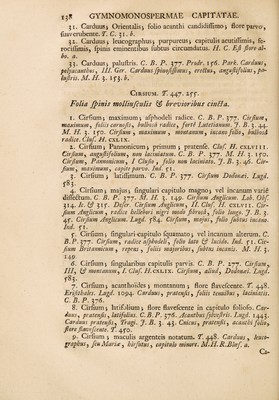 138 GYMNOMONOSPERMAE CAPITATAE.
31. Carduus; Orientalis; folio acanthi candidissimo; flore parvo,
suaverubente. T. C. 31. b.
32. Carduus; leucographus; purpureus; capitulis aculeatis, fe-
rocissimis, spinis eminentibus subtus circumdatus. H. C. Est flore al-
bo. a.
33. Carduus; palustris. C. B. P. 377. Prodr. 156. Park. Carduus,
polyacanthos, III. Ger. Carduus spinosissimus, erectus, angustifolius, pa-
lustris. M. H. 3. 153. b.
CIRSIUM. T. 447. 255.
Folia spinis molliusculis & brevioribus cincta.
1. Cirsium; maximum; asphodeli radice. C. B. P. 377. Cirsium,
maximum, foliis carnosis, bulbosa radice, forte Lusitanicum. J. B. 3. 44.
M. H. 3. 150. Cirsium, maximum, montanum, incano folio, bulbosa
radice. Cluf. H. CXLIX.
2. Cirsium; Pannonicum; primum; pratense. Cluf. H. CXLVIII.
Cirsium, angustifolium, non laciniatum. C. B. P. 377. M. H. 3. 150.
Cirsium, Pannonicum, I Clusio, folio non laciniato. J. B. 3. 46. Cir-
sium, maximum, capite parvo. Ind. 51.
3. Cirsium; latissimum. C. B. P. 377. Cirsium Dodonaei. Lugd.
583.
4. Cirsium; majus; singulari capitulo magno; vel incanum varie
dissectum. C. B. P. 377. M. H. 3. 149. Cirsium Anglicum. Lob. Obf.
314. Ic. & 315. Descr. Cirsium Anglicum, II. Cluf. H. CXLVIII. Cir-
sium Anglicum, radice hellebori nigri modo fibrosa, folio longo. J. B. 3.
45. Cirsium Anglicum. Lugd. 584. Cirsium, majus, folio subtus incano.
Ind. 51.
5. Cirsium; singulari capitulo squamato; vel incanum alterum. C.
B. P. 377. Cirsium, radice asphodeli, folio lato & lucido. Ind. 51. Cir-
sium Britannicum, repens, foliis majoribus, subtus incanis. M. H. 3.
149.
6. Cirsium; singularibus capitulis parvis. C. B. P. 377. Cirsium,
III, & montanum, I. Cluf. H. CXLIX. Cirsium, aliud, Dodonaei. Lugd.
583.
7. Cirsium; acanthoides; montanum; flore flavescente. T. 448.
Eristhales. Lugd. 1094. Carduus, pratensis, foliis tenuibus, laciniatis.
C. B. P. 376.
8. Cirsium; latifolium; flore flavescente in capitulo folioso. Car-
duus, pratensis, latifolius. C. B. P. 376. Acanthus sylvestris. Lugd. 1443.
Carduus pratensis, Tragi. J. B. 3. 43. Cnicus, pratensis, acanthi folio,
flore flavescente. T. 450.
9. Cirsium; maculis argenteis notatum. T. 448. Carduus, leuco-
graphus, seu Mariae, hirsutus, capitulo minore. M. H. R. Blef. a.
Ca-